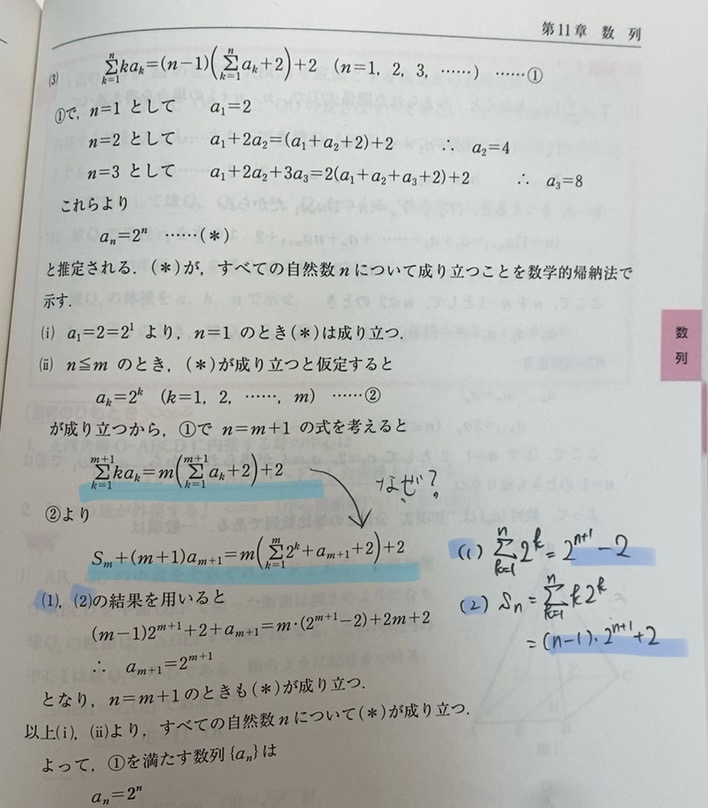 第11章 数 列
(3) $\sum_{k=1}^{n} ka_k=(n-1)\left(\sum_{k=1}^{n} a_k+2\right)+2$ (n=1, 2, 3, ……) ……①
①で,n=1 として a₁=2
n=2 として a₁+2a₂=(a₁+a₂+2)+2 ∴ a₂=4
n=3 として a₁+2a₂+3a₃=2(a₁+a₂+a₃+2)+2 ∴ a₃=8
これらより
$a_n=2^n$ ……(*)
と推定される.(*)が,すべての自然数 n について成り立つことを数学的帰納法で
示す.
(i) $a_1=2=2^1$ より,n=1 のとき(*)は成り立つ.
(ii) n≦m のとき,(*)が成り立つと仮定すると
$a_k=2^k$ (k=1, 2, ……, m) ……②
が成り立つから,①で n=m+1 の式を考えると
$\sum_{k=1}^{m+1} ka_k=m\left(\sum_{k=1}^{m+1} a_k+2\right)+2$
なぜ?
②より
$S_m+(m+1)a_{m+1}=m\left(\sum_{k=1}^{m} 2^k+a_{m+1}+2\right)+2$
(1),(2)の結果を用いると
$(m-1)2^{m+1}+2+a_{m+1}=m\cdot(2^{m+1}-2)+2m+2$
∴ $a_{m+1}=2^{m+1}$
となり,n=m+1 のときも(*)が成り立つ.
以上(i),(ii)より,すべての自然数 n について(*)が成り立つ.
よって,①を満たす数列{$a_n$}は
$a_n=2^n$
(1) $\sum_{k=1}^{n} 2^k=2^{n+1}-2$
(2) $S_n=\sum_{k=1}^{n} k2^k$
$=(n-1)\cdot 2^{n+1}+2$
数
列